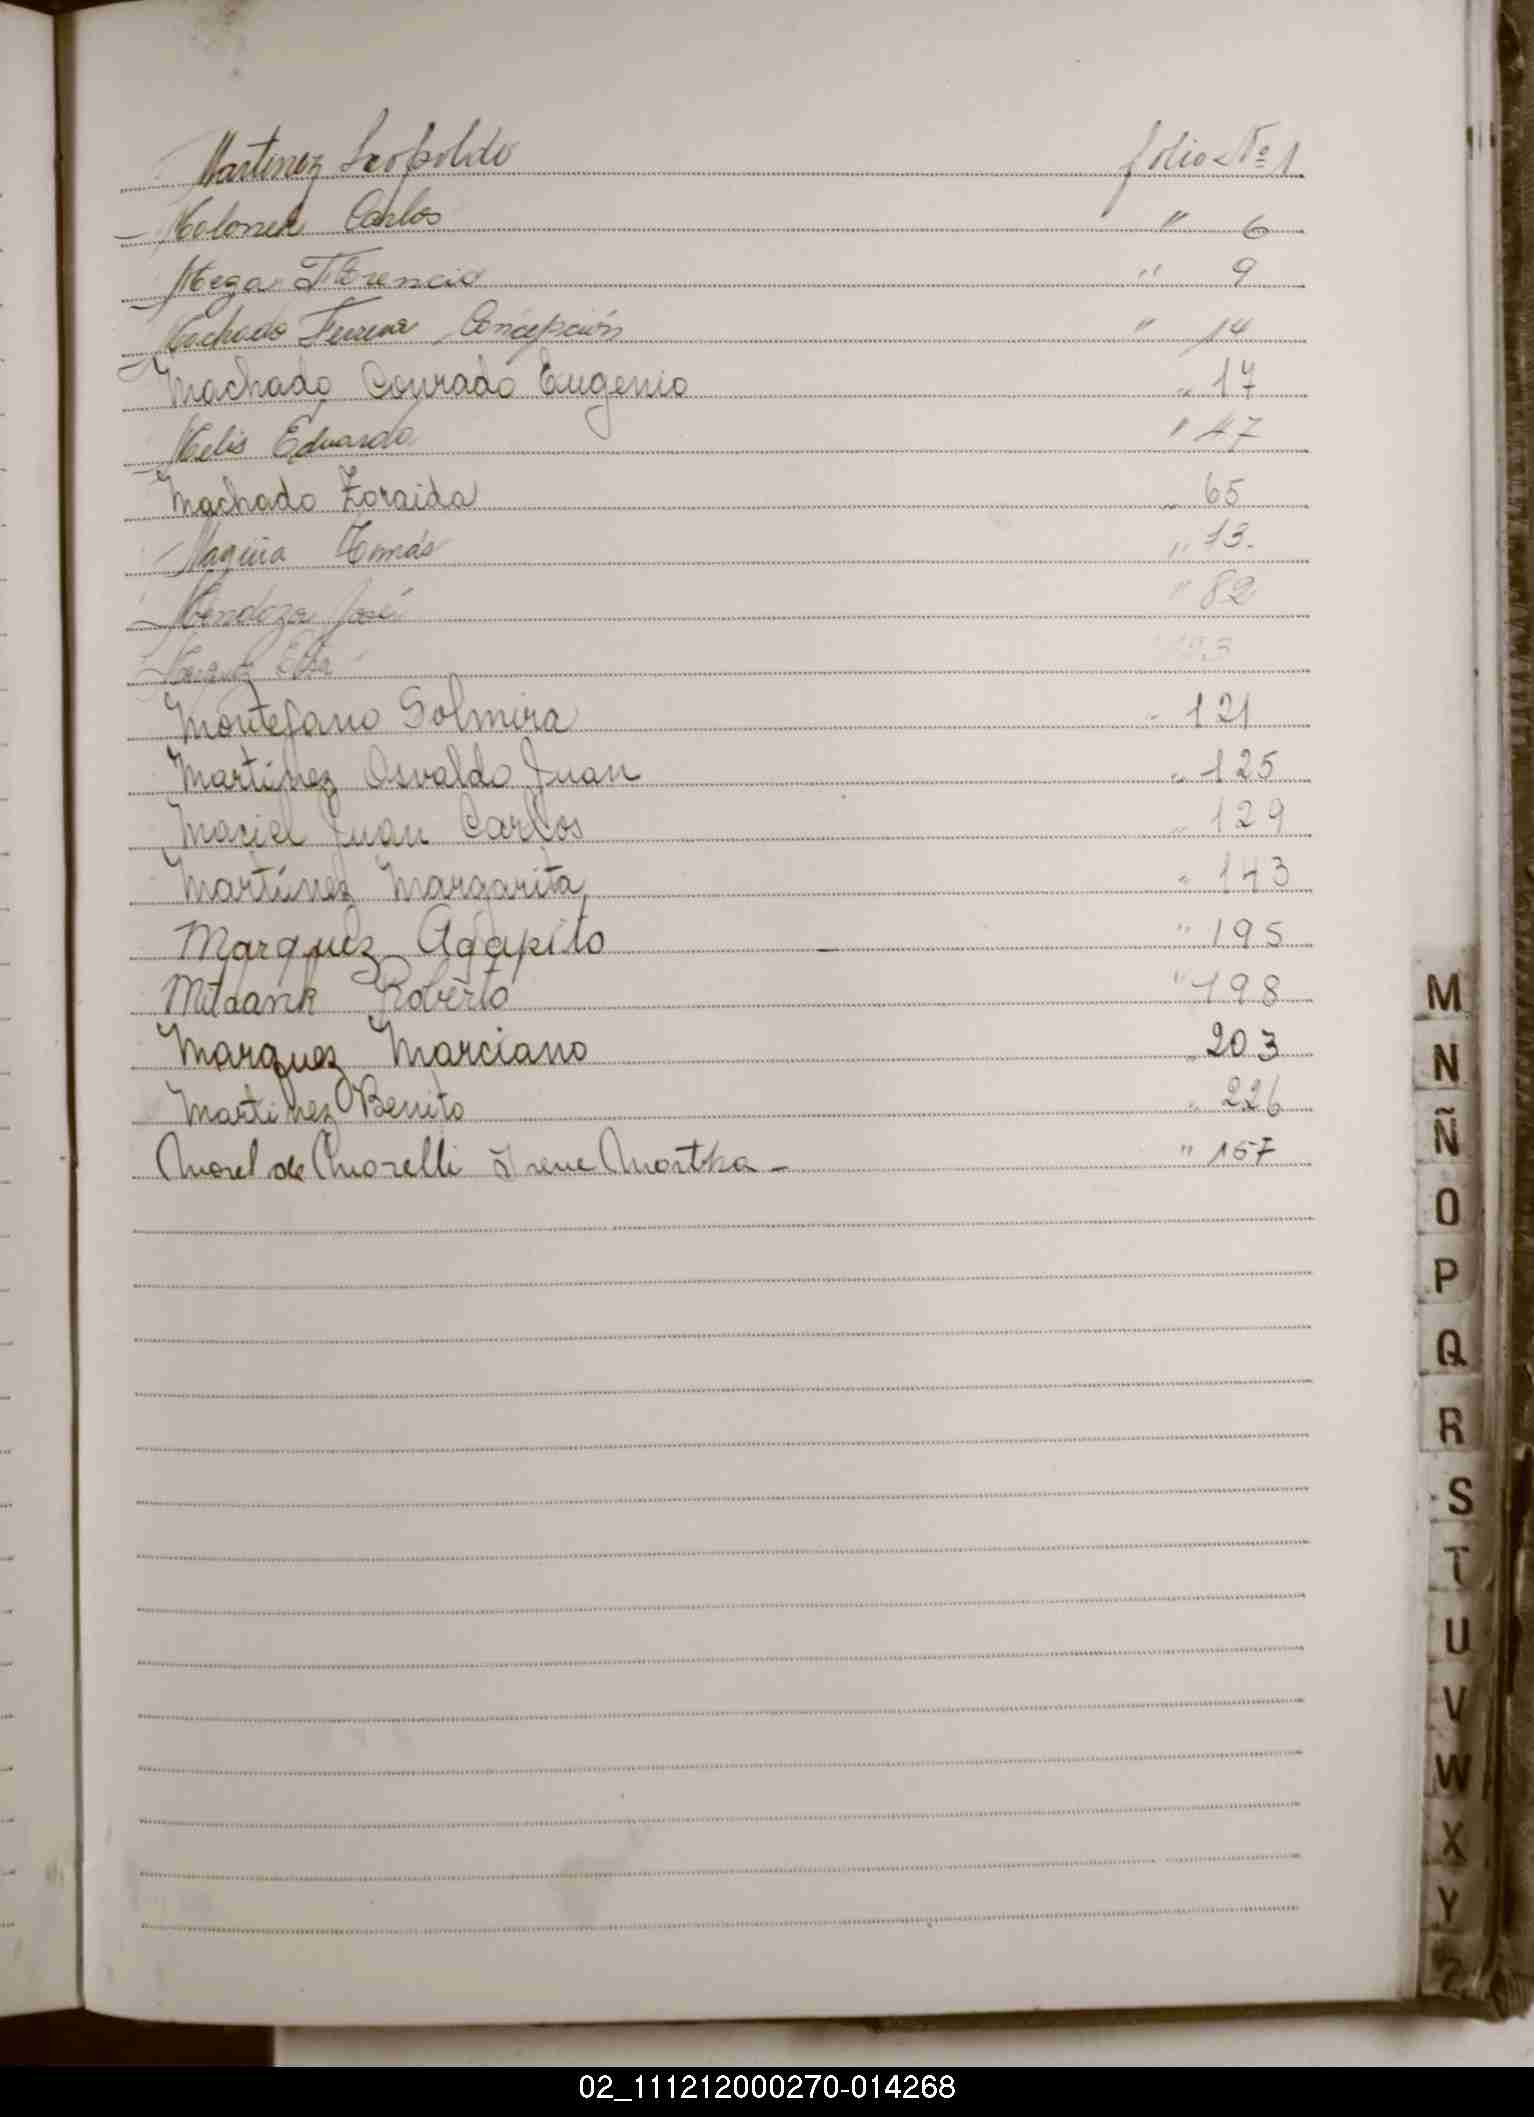 Martinez Leopoldo folio Nº 1
Carlos " 6
Meza Florencio " 9
Machado Ferrera Concepción " 14
Machado Conrado Eugenio " 17
Melis Eduardo " 47
Machado Zoraida " 65
Tomás " 13.
Mendoza José " 82
Montejano Solmira " 121
Martinez Osvaldo Juan " 125
Maciel Juan Carlos " 129
Martínez Margarita " 143
Marquez Agapito — " 195
Mildank Roberto " 198
Marquez Marciano " 203
Martinez Benito " 226
Morel de Morelli Irene Martha - " 157
M
N
Ñ
O
P
Q
R
S
T
U
V
W
X
Y
Z
02_111212000270-014268